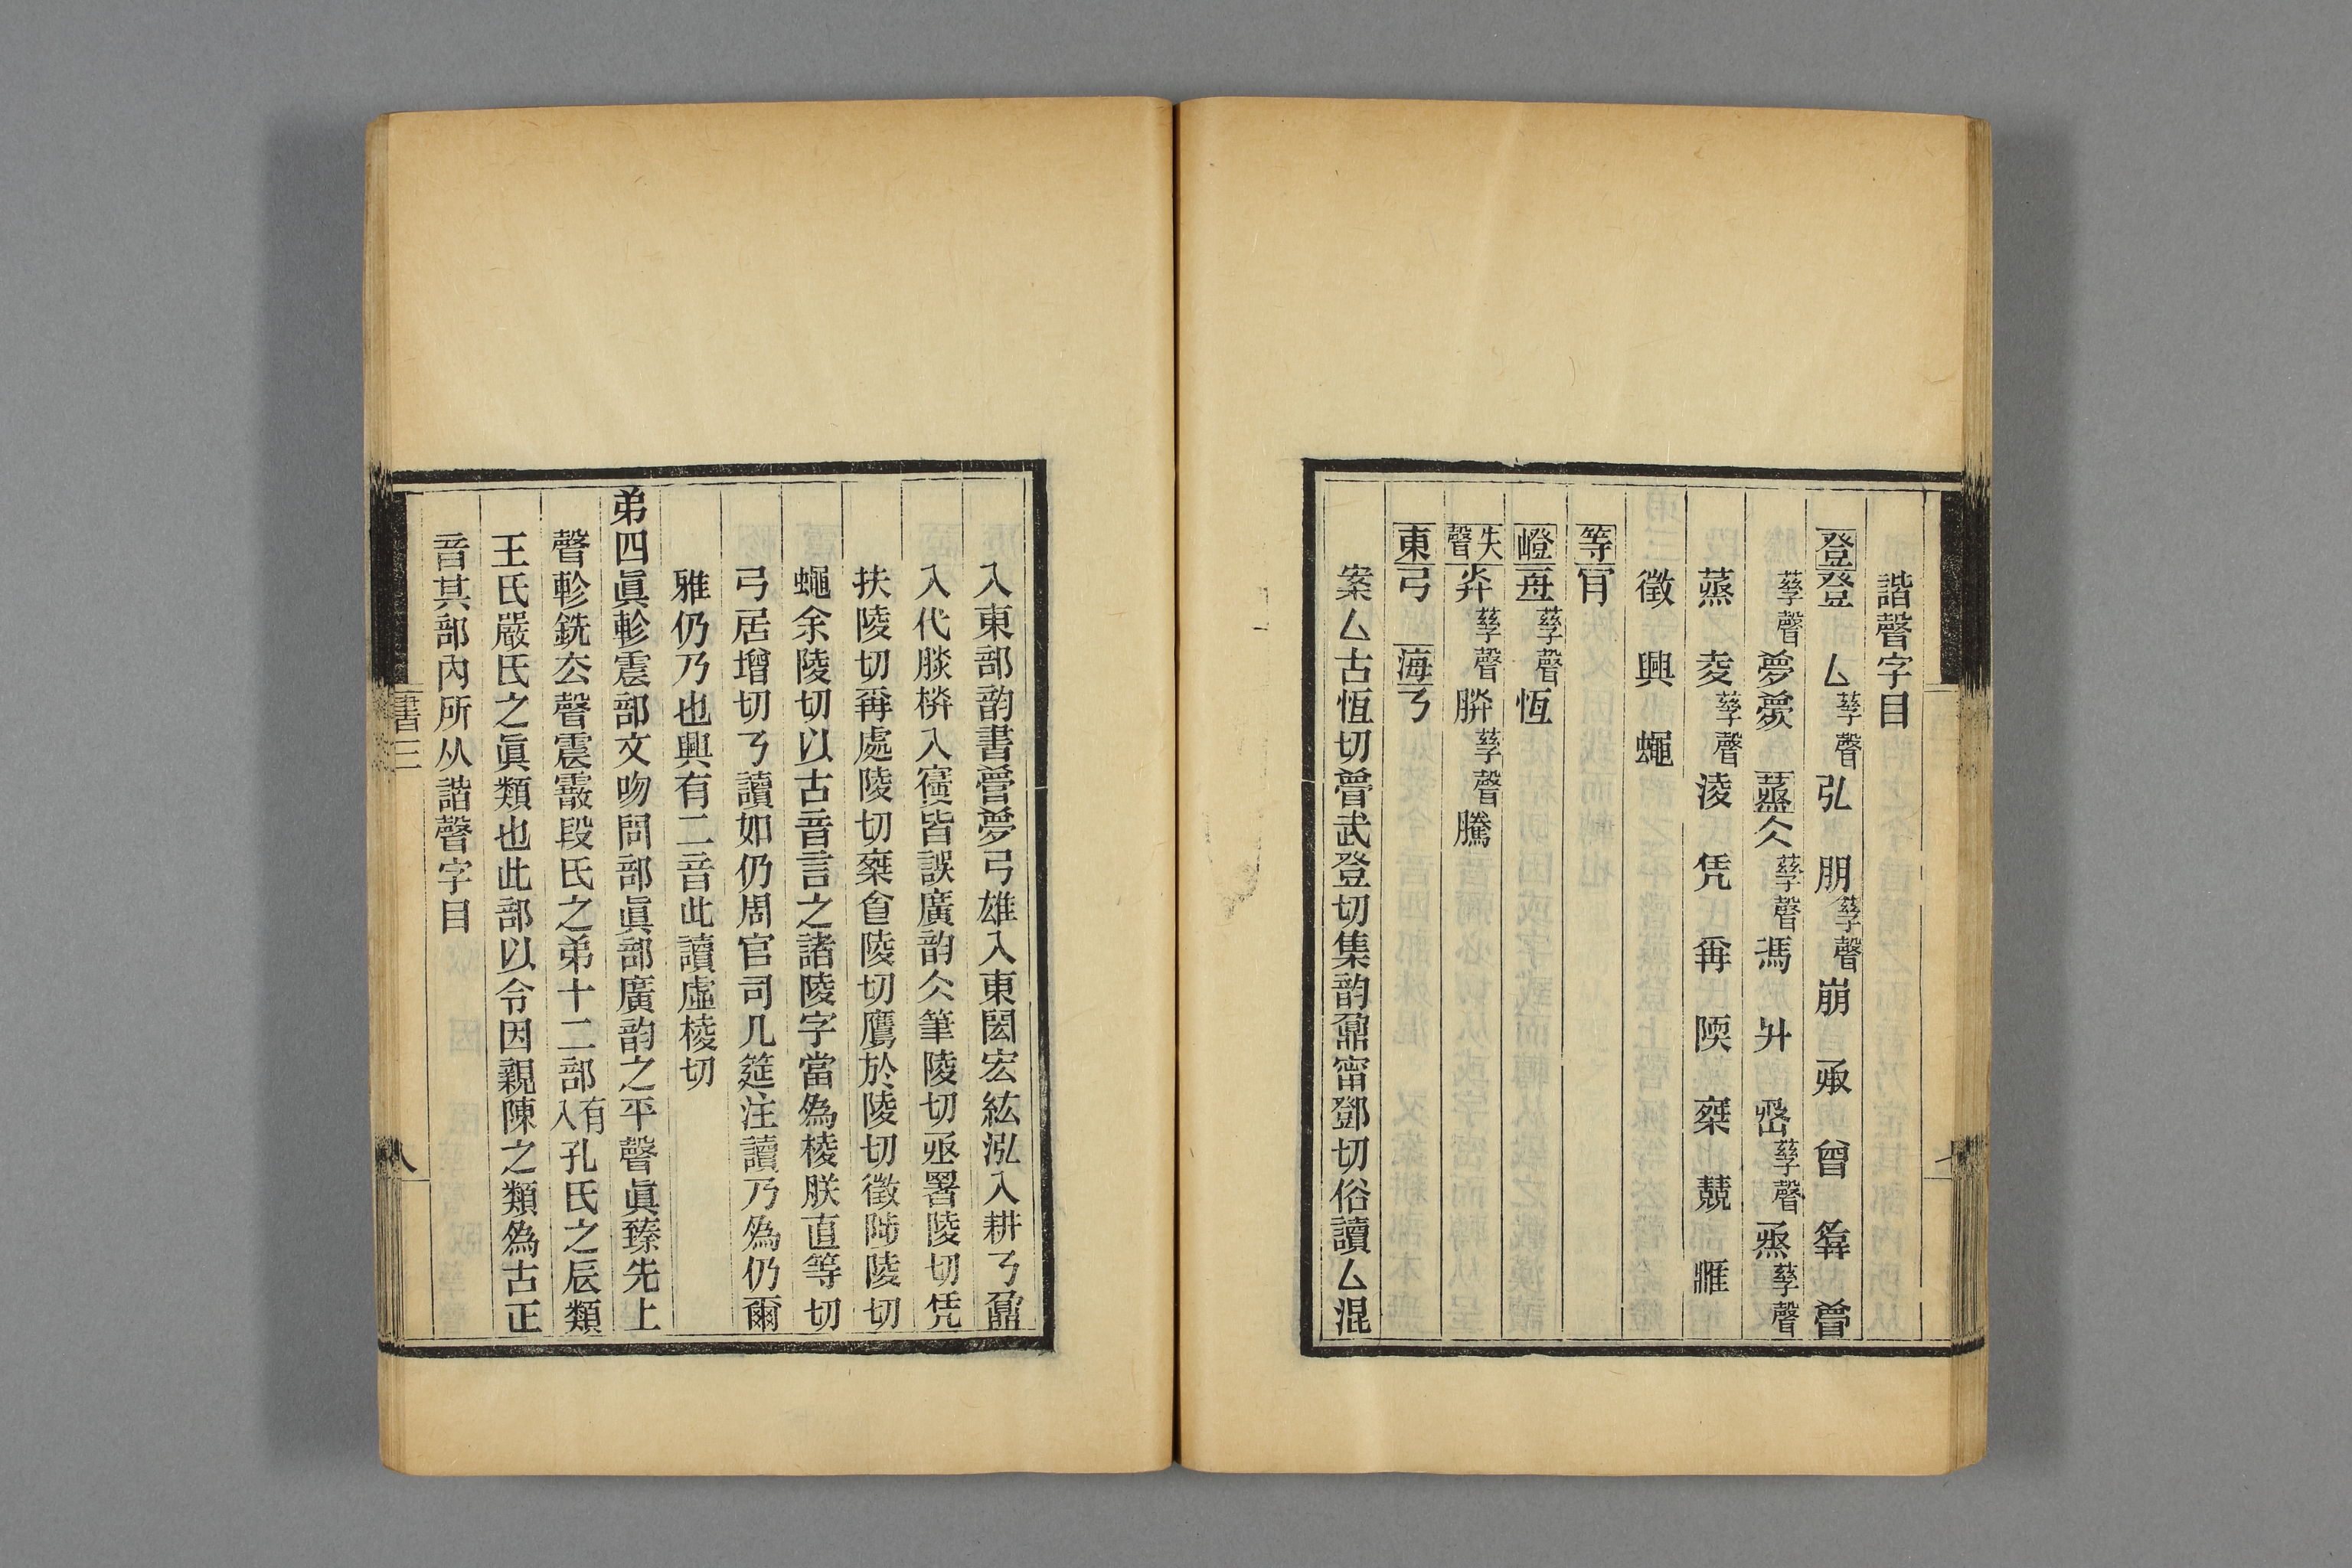 諧聲字目
登登　厶孳聲弘　朋孳聲崩　曾　瞢
孳聲夢　蒸仌孳聲馮　升　丞孳聲
蒸　夌孳聲淩　凭　爯　陾　椉　兢
徵　興　蠅
等肎
嶝　孳聲恆
失聲　孳聲　孳聲騰
東弓　海乃
案厶古恆切瞢武登切集韵鼐甯鄧切俗讀厶混
入東部韵書瞢夢弓雄入東閎宏紘泓入耕乃鼐
入代朕栚入寑皆誤廣韵仌筆陵切丞署陵切凭
扶陵切爯處陵切椉食陵切鷹於陵切徵陟陵切
蠅余陵切以古音言之諸陵字當為棱朕直等切
弓居增切乃讀如仍周官司几筵注讀乃為仍爾
雅仍乃也興有二音此讀虛棱切
弟四眞軫震部文吻問部眞部廣韵之平聲眞臻先上
聲軫銑去聲震霰段氏之弟十二部有入孔氏之辰類
王氏嚴氏之眞類也此部以令因親陳之類為古正
音其部內所从諧聲字目
書三
八